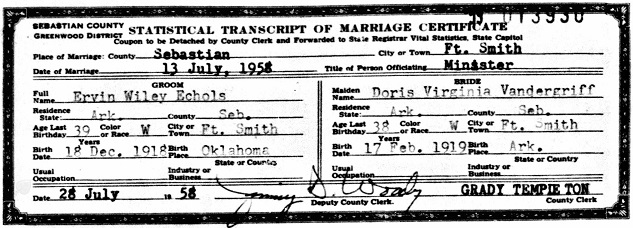 SEBASTIAN COUNTY
GREENWOOD DISTRICT
STATISTICAL TRANSCRIPT OF MARRIAGE CERTIFICATE
Coupon to be Detached by County Clerk and Forwarded to State Registrar Vital Statistics, State Capitol
Place of Marriage: County Sebastian City or Town Ft. Smith
Date of Marriage 13 July, 1958 Title of Person Officiating Minister
GROOM
Full Name Ervin Wiley Echols
Residence State: Ark. County Seb.
Age Last Birthday 39 Years Color or Race W City or Town Ft. Smith
Birth Date 18 Dec. 1918 Birth Place Oklahoma
State or County
Usual Occupation Industry or Business
BRIDE
Maiden Name Doris Virginia Vandergriff
Residence State: Ark. County Seb.
Age Last Birthday 38 Years Color or Race W City or Town Ft. Smith
Birth Date 17 Feb. 1919 Birth Place Ark.
State or County
Usual Occupation Industry or Business
Date 28 July 1958
Deputy County Clerk.
GRADY TEMPLETON
County Clerk